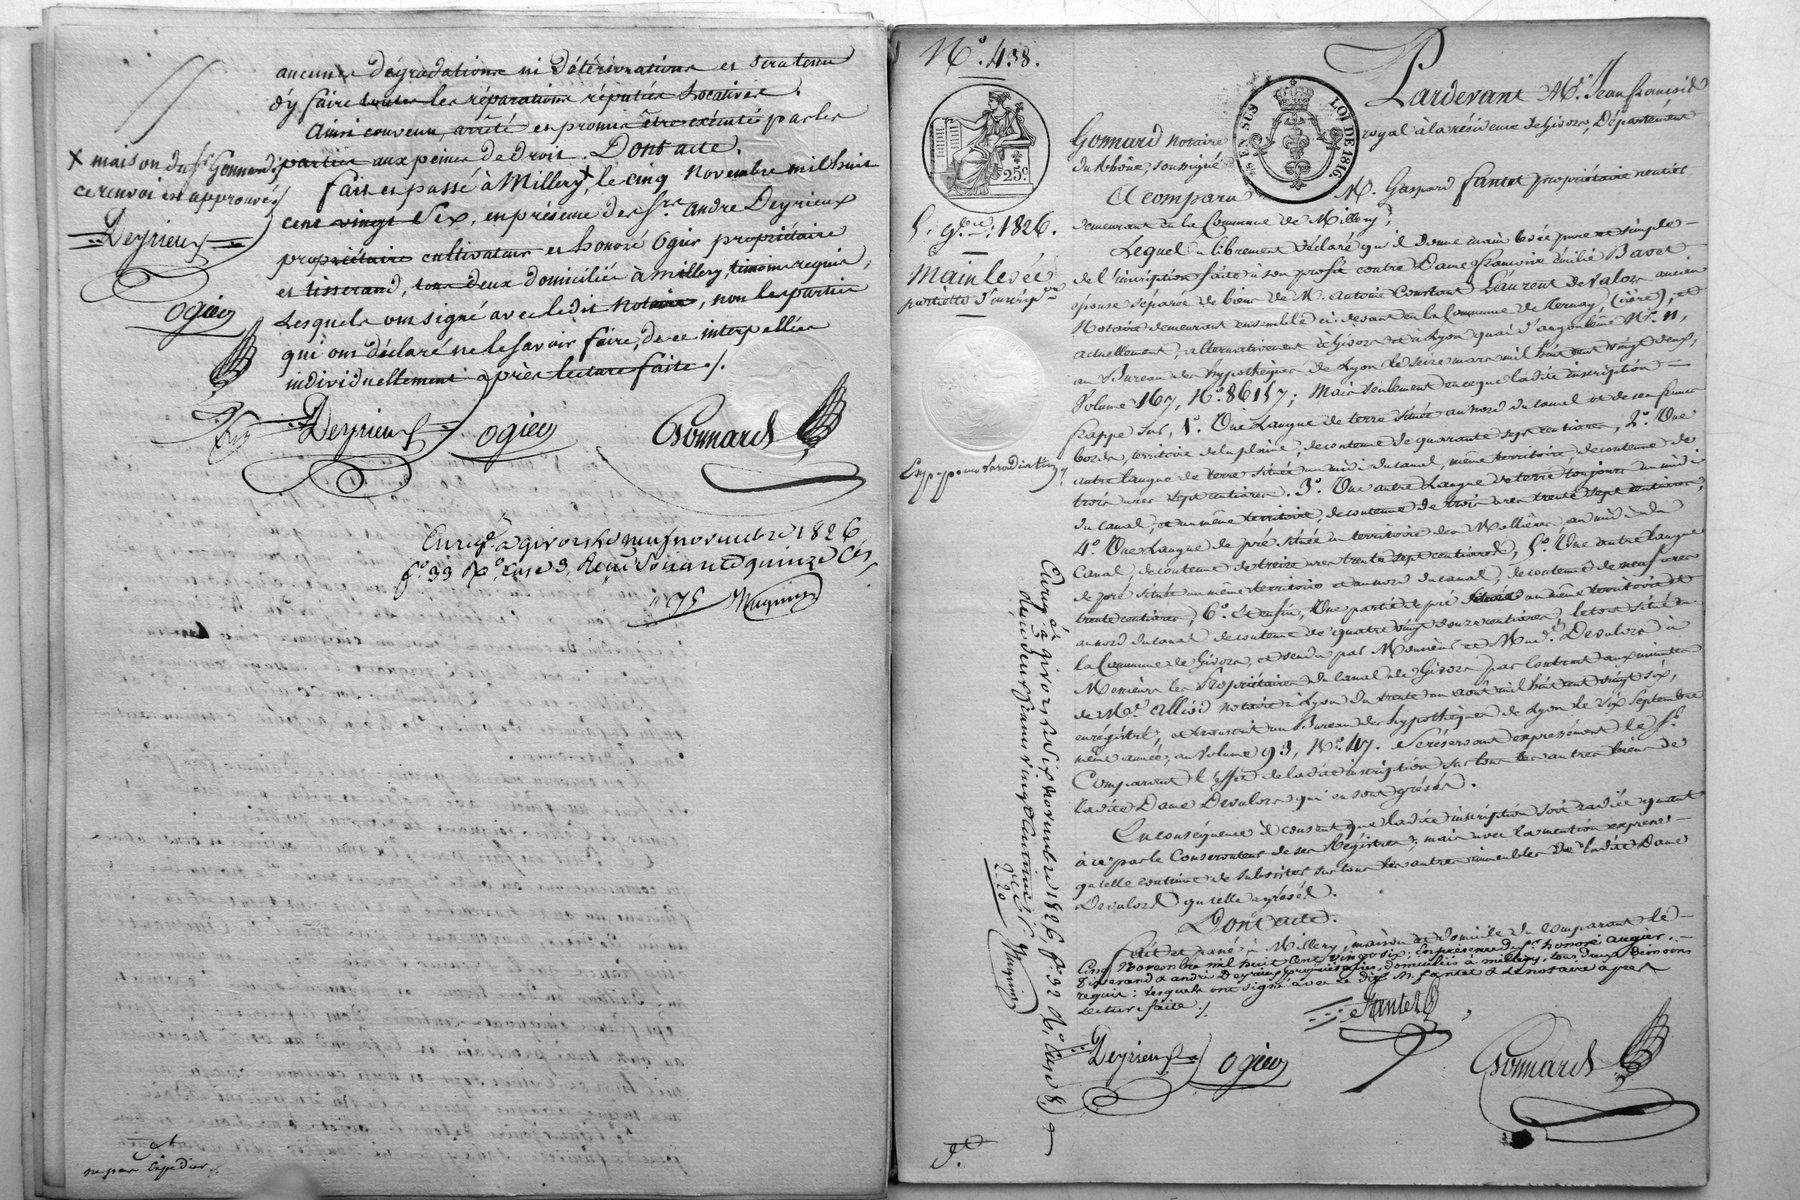 aucunes dégradations ni détériorations et sera tenu
d'y faire toutes les réparations réputées locatives.
Ainsi convenu, arrêté et promis être exécuté par les
parties aux peines de droit. Dont acte.
fait et passé à Millery X, le cinq novembre mil huit
cent vingt six, en présence des srs. andré Deyrieux
propriétaire cultivateur et honoré Ogier propriétaire
et tisserand, tous deux domiciliés à millery, témoins requis,
Lesquels ont signé avec ledit notaire, non les parties
qui ont déclaré ne le savoir faire, de ce interpellées
individuellement après lecture faite ./.
X maison du sr. Gonnard
ce renvoi est approuvé
Deyrieux
ogier
Deyrieux ogier Gonnard
Enregé. à givors le neuf novembre 1826
fo. 33 Ro. Case 3, Reçu soixante quinze ces.
75
ne pas Expédier ./.
No. 438.
25c.
EN SUS
LOI DE 1816.
5. 9bre. 1826.
Mainlevée
partielle d'inscripon
Pardevant Me. Jean françois
Gonnard notaire royal à la résidence de Givors, Département
du Rhône, soussigné
A comparu M. Gaspard fantet propriétaire rentier
demeurant en la Commune de Millery;
Lequel a librement déclaré qu'il donne main levée pure et simple
de l'inscription faite à son profit contre Dame françoise émilie Bavet
épouse séparée de biens de M. Antoine Constant Léaurent Devalors ancien
Notaire demeurant ensemble ci-devant en la Commune de Ternay (isère), et
actuellement, alternativement à Givors et à Lyon quai d'angoulême No. 11,
au Bureau des hypothèques de Lyon le seize mars mil huit cent vingt deux,
Volume 167, No. 86157; Mais seulement en ce que ladite inscription
frappe sur, 1o. Une Langue de terre située au nord du canal et de ses francs
bords, territoire de la plaine, de contenue de quarante sept centiares, 2o. Une
autre langue de terre située au midi du canal, même territoire, de contenue de
trois ares sept centiares. 3o. Une autre Langue de terre toujours au midi
du canal, et au même territoire, de contenue de trois ares trente sept centiares,
4o. Une Langue de pré située au territoire des Mollières, au midi du
Canal, de contenue de treize ares trente sept centiares, 5o. Une autre langue
de pré située au même territoire et au nord du canal, de contenue de neuf ares
trente centiares, 6o. Et enfin, Une partie de pré située au même territoire et
au nord du canal de contenue de quatre vingt douze centiares, le tout situé en
la Commune de Givors, et vendu par Monsieur et Made. Devalors à
Messieurs les Propriétaires du canal de Givors par Contrat aux minutes
de Me. Alliod notaire à Lyon du trente un août mil huit cent vingt six,
enregistré, et transcrit au Bureau des hypothèques de Lyon le six Septembre
même année, au Volume 93, No. 47. Se réservant expressément le sr.
Comparant l'effet de ladite inscription sur tous les autres biens de
ladite Dame Devalors qui en sont grévés.
En conséquence il consent que ladite inscription soit radiée quant
à ce par le Conservateur de ses Régistres; mais avec la mention expresse
qu'elle continue de subsister sur tous les autres immeubles de ladite Dame
Devalors qu'elle a grévés.
Dont acte.
fait et passé à Millery, maison et domicile du comparant le
Cinq Novembre mil huit cent vingt six; En présence des srs. honoré augier
tisserand & andré Deyrieux propriétaires, domiciliés à millery, tous deux témoins
requis: lesquels ont signé avec le dit sr. M. fantet & le notaire après
lecture faite ./.
fantet
Deyrieux ogier Gonnard
Enregé. à givors le dix novembre 1826 fo. 32 Vo. Case 8,
deux francs vingt centimes
2.20